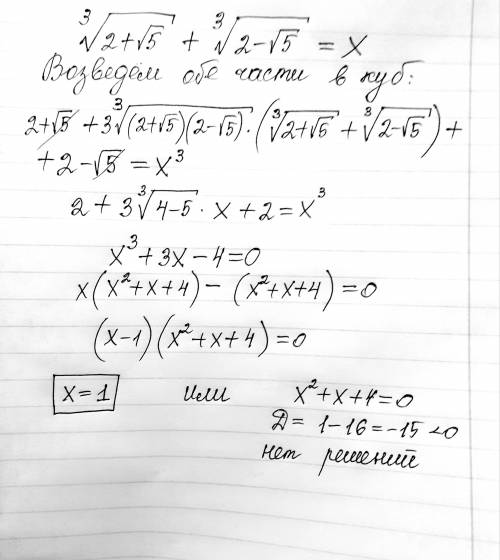 ∛(2+√5) + ∛(2-√5) = x
Возведём обе части в куб:
2+√5 + 3∛((2+√5)(2-√5)) · (∛(2+√5) + ∛(2-√5)) +
+ 2-√5 = x³
2 + 3∛(4-5) · x + 2 = x³
x³ + 3x - 4 = 0
x(x²+x+4) - (x²+x+4) = 0
(x-1)(x²+x+4) = 0
x = 1 или x²+x+4=0
Д = 1-16 = -15 < 0
нет решений